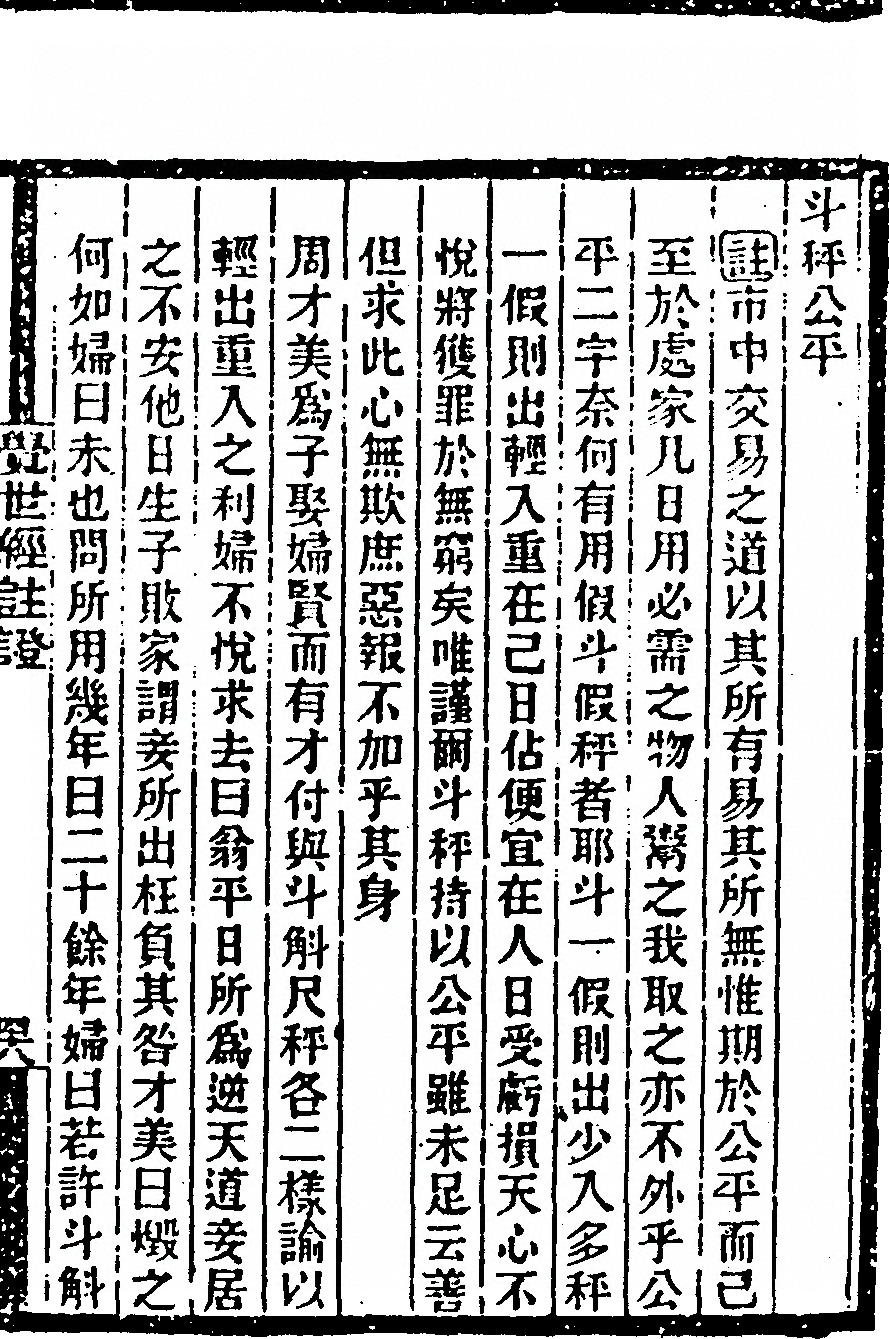 斗秤公平
註市中交易之道以其所有易其所無惟期於公平而已
至於處家凡日用必需之物人鬻之我取之亦不外乎公
平二字奈何有用假斗假秤者耶斗一假則出少入多秤
一假則出輕入重在己日佔便宜在人日受虧損天心不
悅將獲罪於無窮矣唯謹爾斗秤持以公平雖未足云善
但求此心無欺庶惡報不加乎其身
周才美爲子娶婦賢而有才付與斗斛尺秤各二樣諭以
輕出重入之利婦不悅求去曰翁平日所爲逆天道妾居
之不安他日生子敗家謂妾所出枉負其咎才美曰燬之
何如婦曰未也問所用幾年曰二十餘年婦曰若許斗斛
覺世經註證